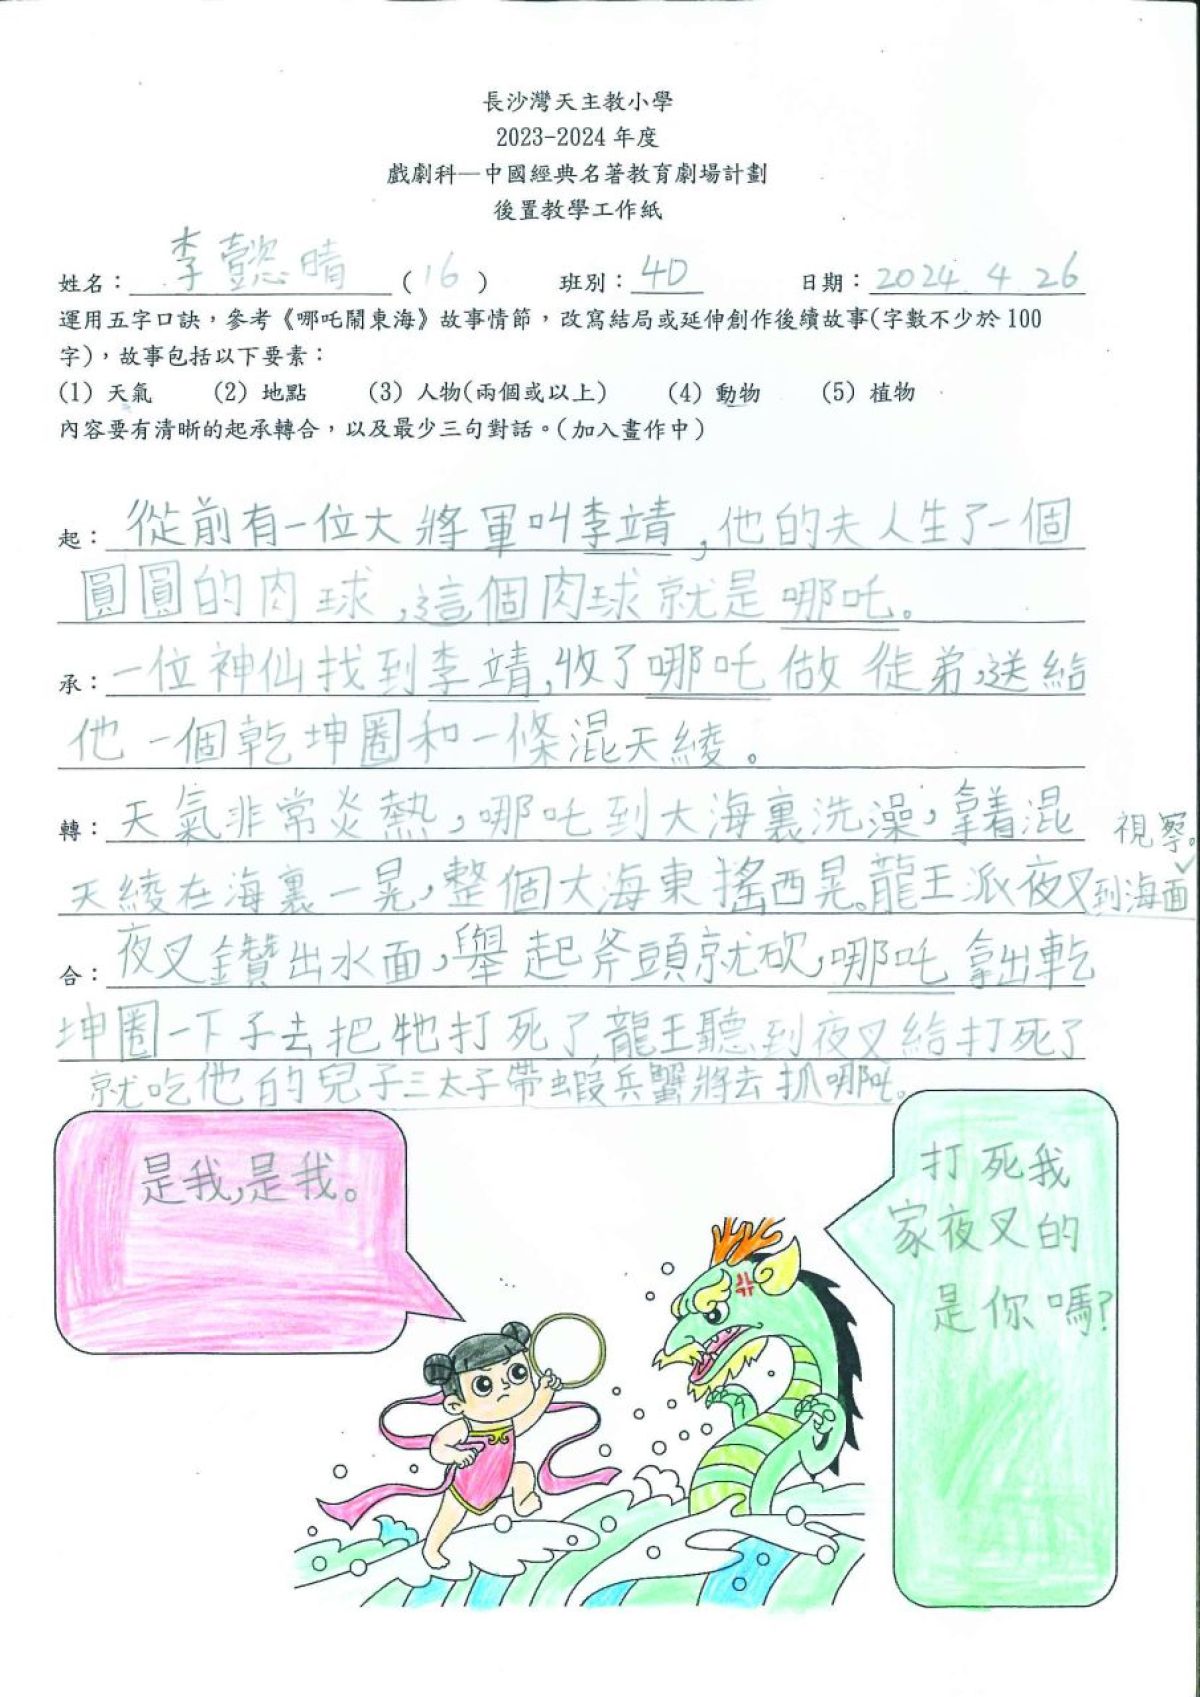 長沙灣天主教小學
2023-2024 年度
戲劇科—中國經典名著教育劇場計劃
後置教學工作紙
姓名：李懿晴（16） 班別：4D 日期：2024.4.26
運用五字口訣，參考《哪吒鬧東海》故事情節，改寫結局或延伸創作後續故事(字數不少於 100
字)，故事包括以下要素：
(1) 天氣 (2) 地點 (3) 人物(兩個或以上) (4) 動物 (5) 植物
內容要有清晰的起承轉合，以及最少三句對話。(加入畫作中)
起：從前有一位大將軍叫李靖，他的夫人生了一個
圓圓的肉球，這個肉球就是哪吒。
承：一位神仙找到李靖，收了哪吒做徒弟，送給
他一個乾坤圈和一條混天綾。
轉：天氣非常炎熱，哪吒到大海裏洗澡，拿着混
天綾在海裏一晃，整個大海東搖西晃。龍王派夜叉到海面
視察。
合：夜叉鑽出水面，舉起斧頭就砍，哪吒拿出乾
坤圈一下子去把牠打死了，龍王聽到夜叉給打死了
就吃他的兒子三太子帶蝦兵蟹將去抓哪吒。
是我，是我。
打死我
家夜叉的
是你嗎？